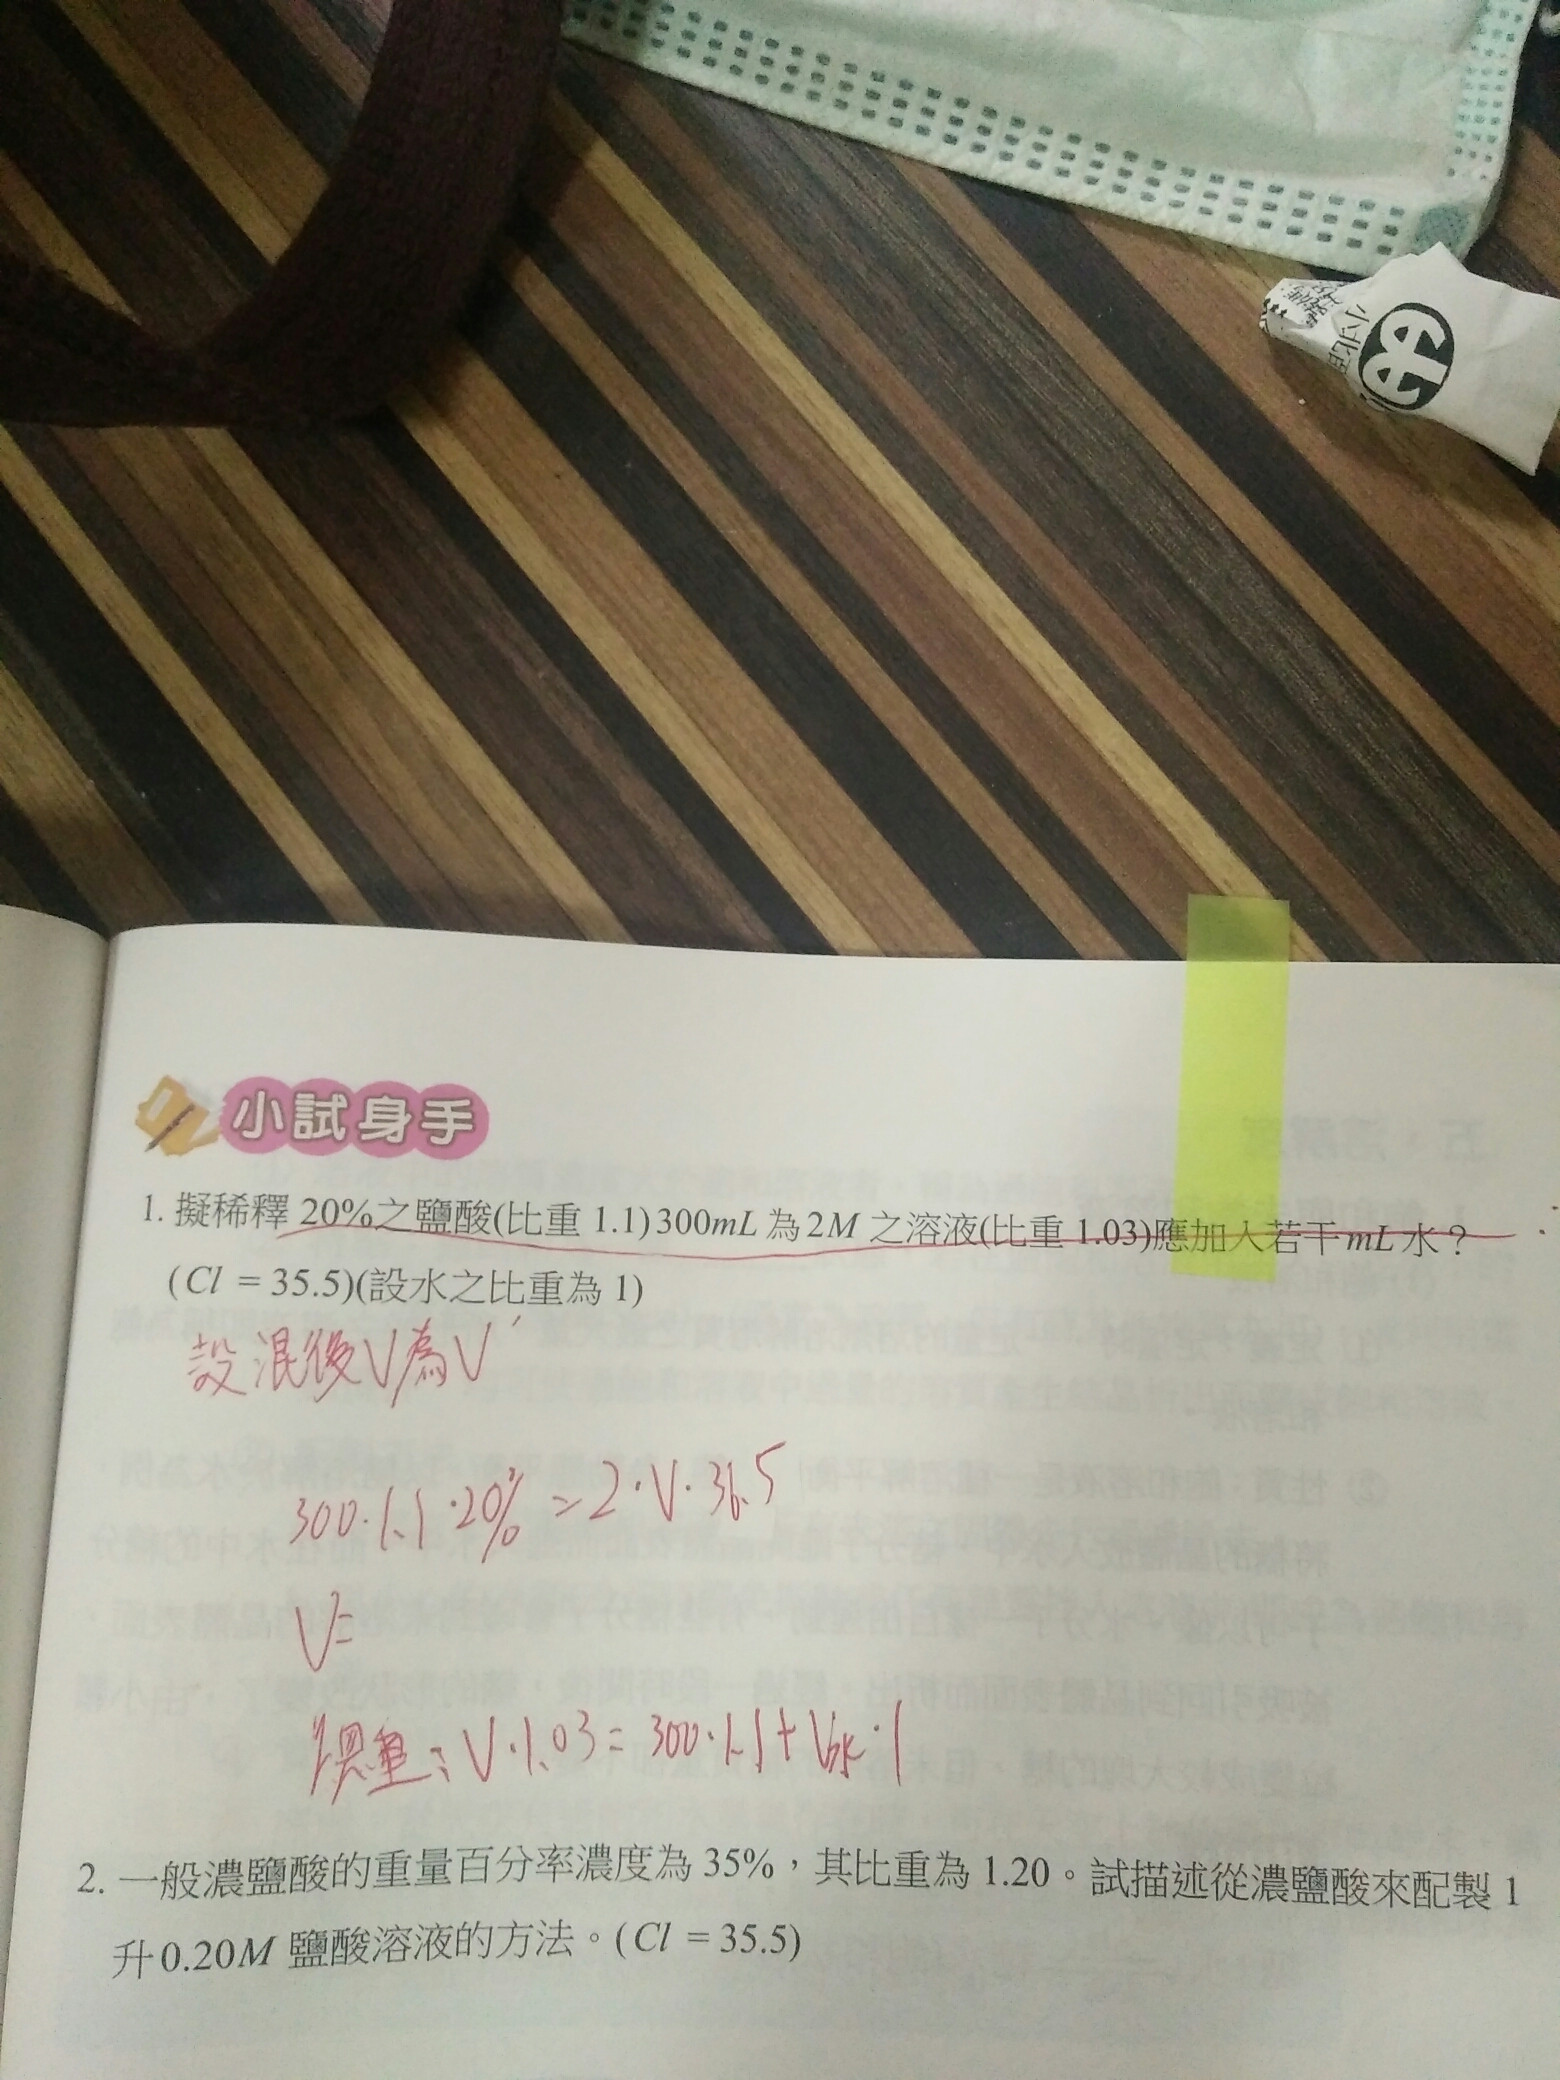 小北百
小試身手
1. 擬稀釋 20%之鹽酸(比重 1.1)300mL 為 2M 之溶液(比重 1.03)應加入若干 mL 水?
(Cl = 35.5)(設水之比重為 1)
設混後V為V'
300·1.1·20% = 2·V·36.5
V=
V·1.03 = 300·1.1 + V水·1
2. 一般濃鹽酸的重量百分率濃度為 35%,其比重為 1.20。試描述從濃鹽酸來配製 1
升 0.20M 鹽酸溶液的方法。(Cl = 35.5)